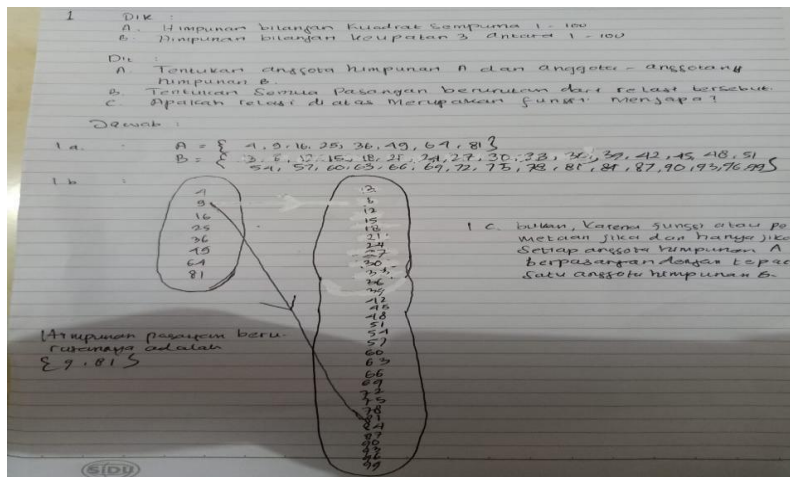 1 Dik :
A. Himpunan bilangan Kuadrat Sempurna 1 - 100
B. Himpunan bilangan kelipatan 3 antara 1 - 100
Dit :
A. Tentukan anggota himpunan A dan anggota - anggotany
himpunan B.
B. Tentukan Semua Pasangan berurutan dari relasi tersebut.
C. Apakah relasi diatas Merupakan fungsi Mengapa?
Jawab :
1a. : A = { 4, 9, 16, 25, 36, 49, 64, 81}
B = { 3, 6, 12, 15, 18, 21, 24, 27, 30, 33, 36, 39, 42, 45, 48, 51
54, 57, 60, 63, 66, 69, 72, 75, 78, 81, 84, 87, 90, 93, 96, 99}
1.b :
4
9
16
25
36
49
64
81
3
6
12
15
18
21
24
27
30
33
36
39
42
45
48
51
54
57
60
63
66
69
72
75
78
81
84
87
90
93
96
99
Himpunan pasangan beru-
rutannya adalah
{ 9, 81 }
1 C. bukan, Karena fungsi atau pe
metaan jika dan hanya jika
Setiap anggota himpunan A
berpasangan dengan tepat
Satu anggota himpunan B.
SIDU